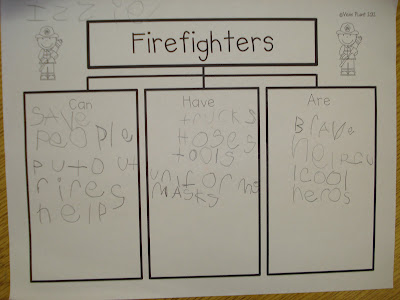 Firefighters
Can
SAve
people
put out
fires
help
Have
trucks
hoses
tools
uniforms
MASKS
Are
Brave
helpfu
l cool
heros